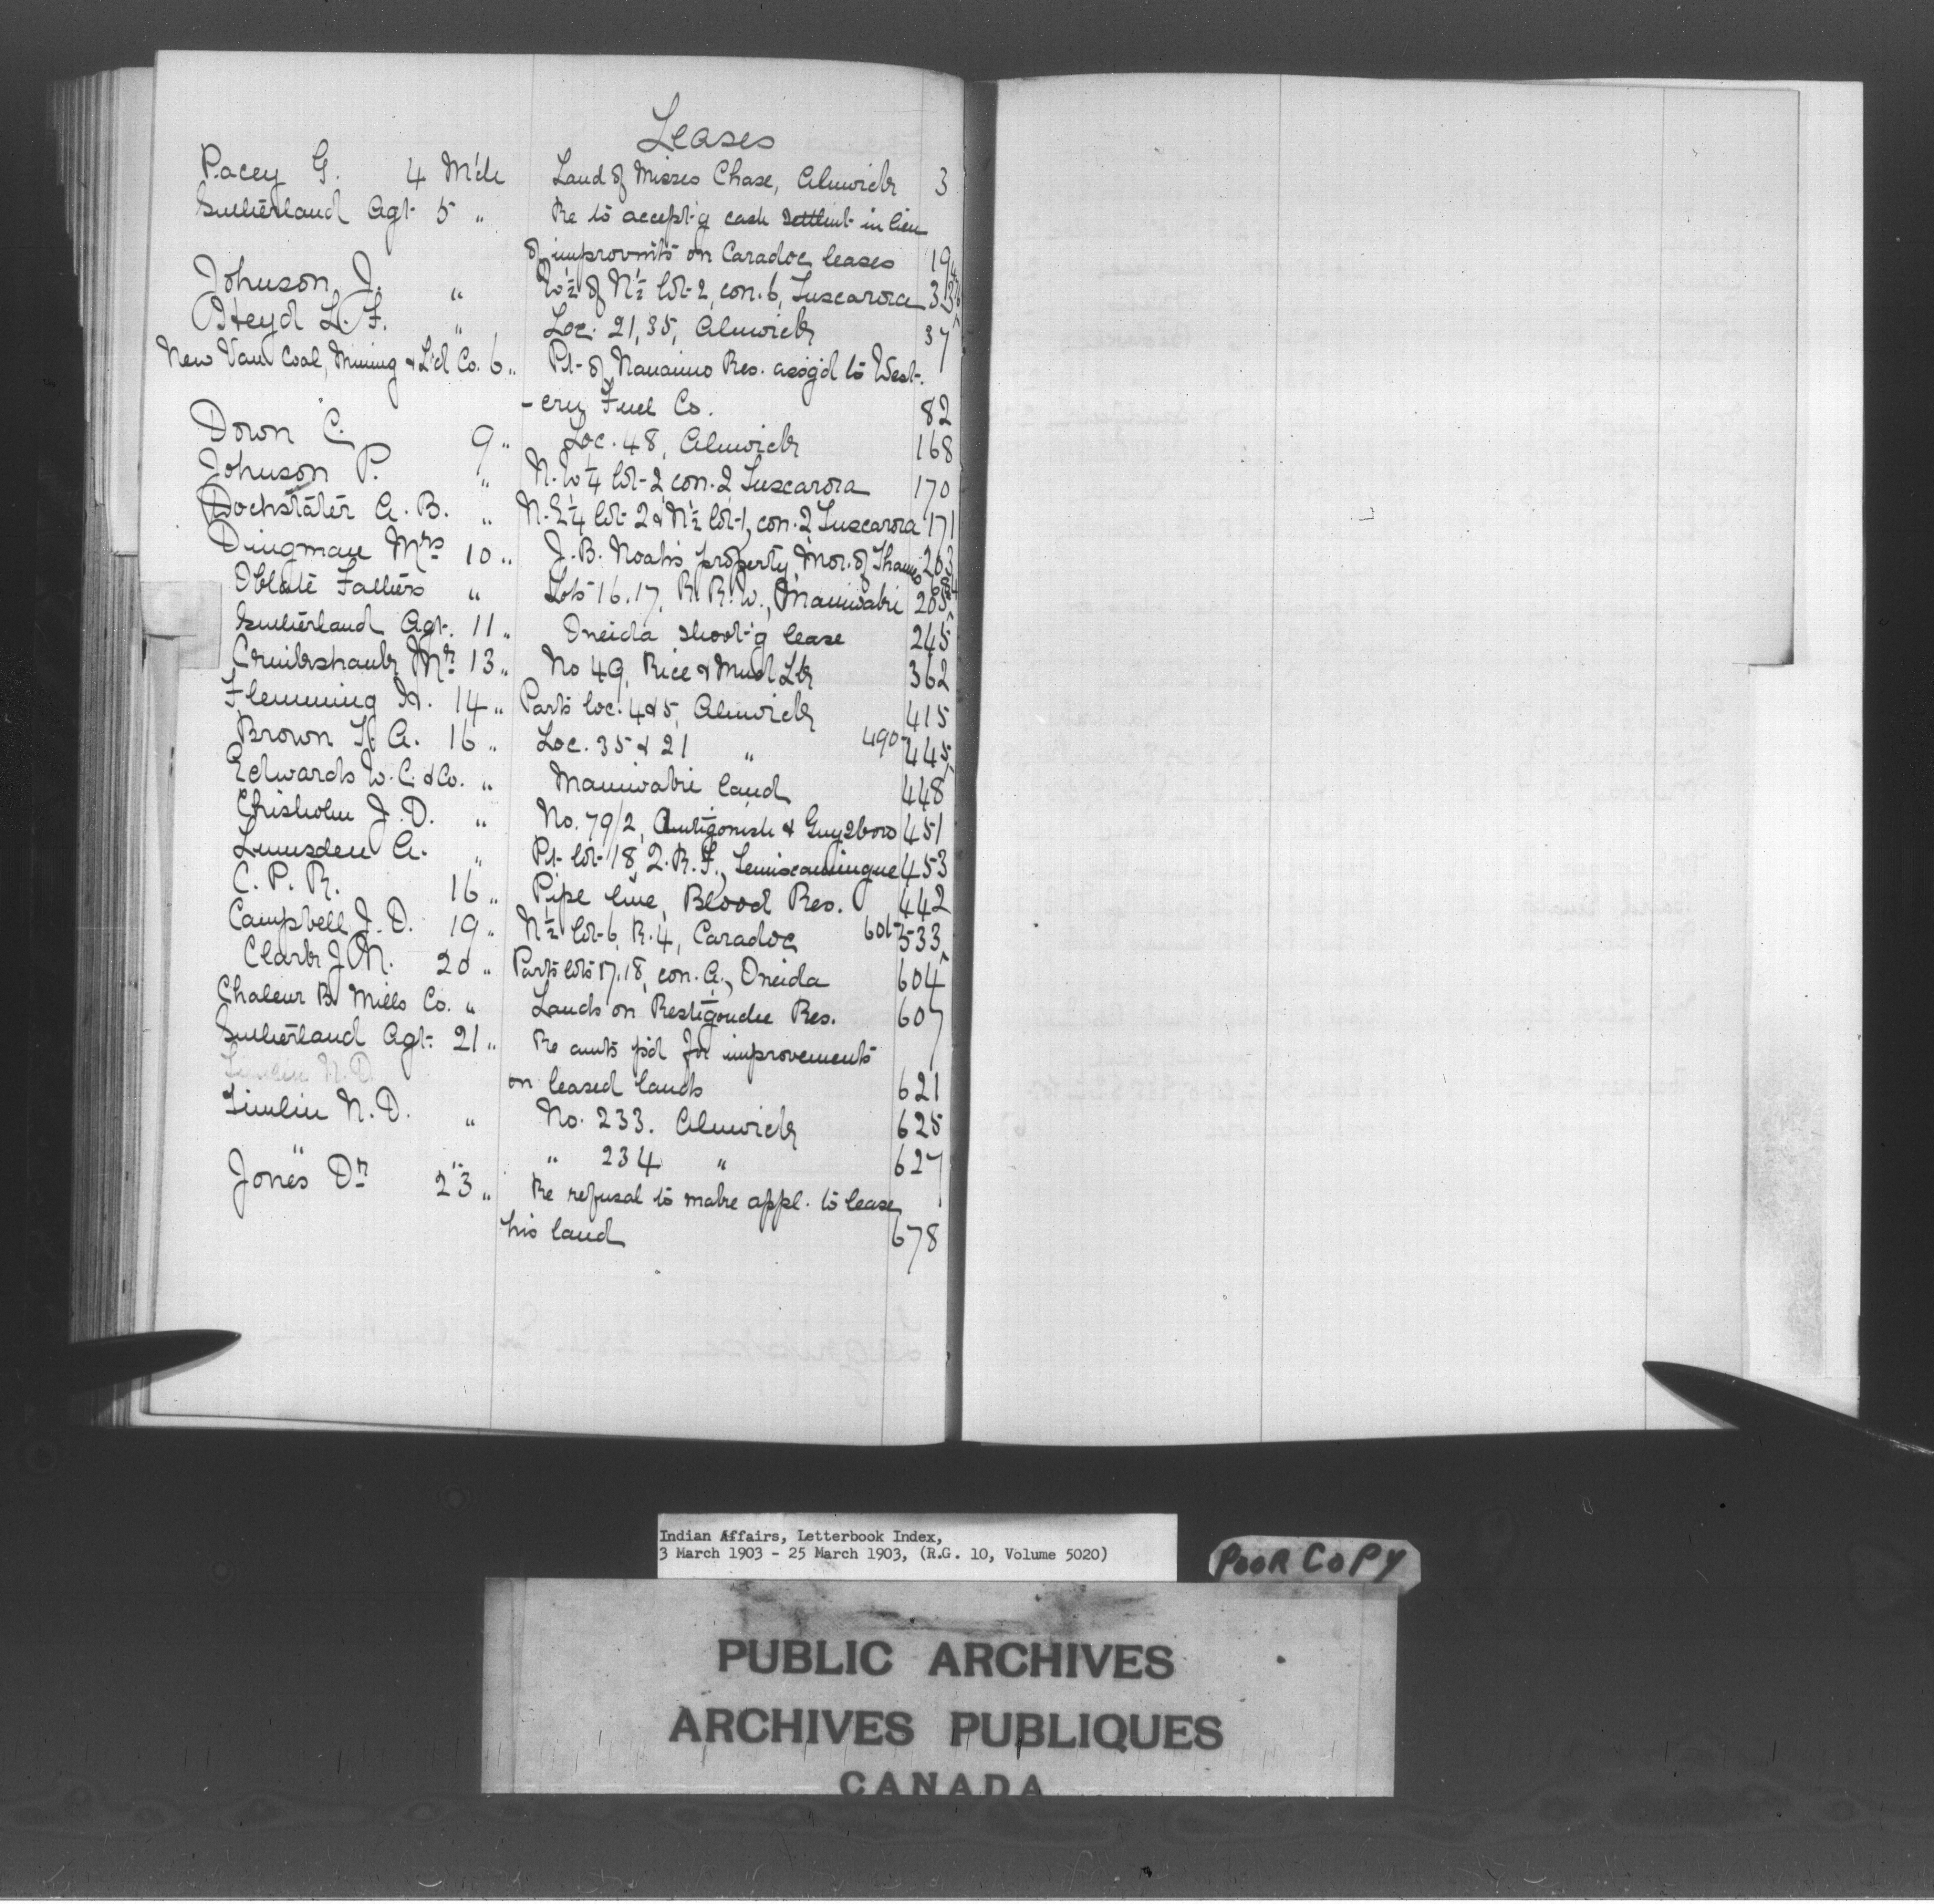 Leases
Pacey G. 4 M'ch Land of Misses Chase, Alnwick 3
Sutherland Agt. 5 " Re to accept'g cash settlm't in lieu
of improvm'ts on Caradoc leases 19
Johnson J. " W½ of N½ lot 2, con. 6, Tuscarora 33
Heyd L. F. " Loc. 21, 35, Alnwick 37
New Van Coal, Mining & L'd Co. 6 " Pt. of Nanaimo Res. assig'd to West-
-ern Fuel Co. 82
Down C. 9 " Loc. 48, Alnwick 168
Johnson P. " N.W¼ lot 2, con. 2 Tuscarora 170
Dochstater A. B. " N.E¼ lot 2 & N½ lot 1, con. 2 Tuscarora 171
Dingman Mrs 10 " J. B. Noah's property, Mor. of Thames 203
Oblate Fathers " Lots 16, 17, R. R. W., Maniwaki 205
Sutherland Agt. 11 " Oneida shoot'g lease 245
Cruikshank Mr 13 " No 49, Rice & Mud Lk 362
Flemming H. 14 " Parts loc. 4 & 5, Alnwick 415
Brown H. A. 16 " Loc. 35 & 21 " 490 445
Edwards W. C. & Co. " Maniwaki land 448
Chisholm J. D. " No. 79/2, Antigonish & Guysboro 451
Lumsden A. " Pt. lot 18, 2. R. F., Temiscamingue 453
C. P. R. 16 " Pipe line, Blood Res. 442
Campbell J. D. 19 " N½ lot 6, R. 4, Caradoc 601 533
Clark J. M. 20 " Parts lots 17, 18, con. A., Oneida 604
Chaleur B. Mills Co. " Lands on Restigouche Res. 607
Sutherland Agt. 21 " Re amts p'd for improvements
Timlin N. D.
on leased lands 621
Timlin N. D. " No. 233. Alnwick 625
" " " 234 " 627
Jones Dr 23 " Re refusal to make appl. to lease
his land 678
Indian Affairs, Letterbook Index,
3 March 1903 - 25 March 1903, (R.G. 10, Volume 5020)
POOR COPY
PUBLIC ARCHIVES
ARCHIVES PUBLIQUES
CANADA